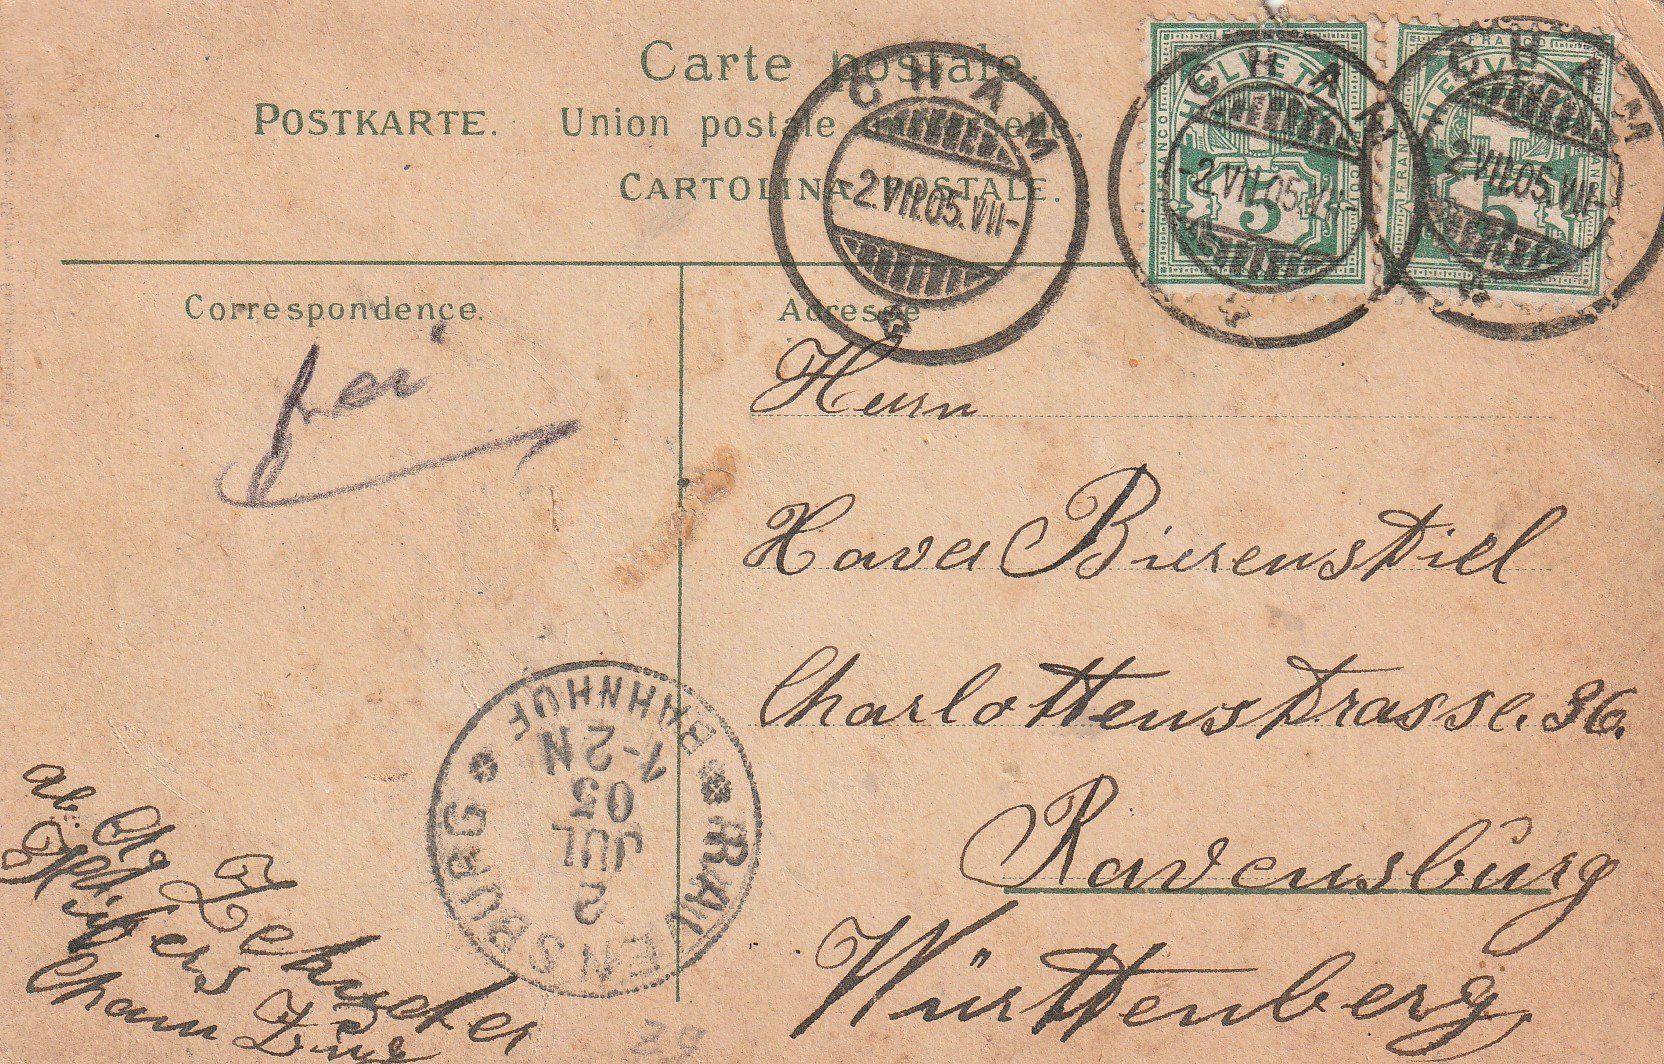 Carte postale.
POSTKARTE. Union postale
CARTOLINA POSTALE.
CHAM
-2.VII.05.VII-
CHAM
-2.VII.05.VII-
HELVETIA
FRANCO
5
CHAM
2.VII.05.VII-
HELVETIA
FRANCO
5
Correspondence.
Adresse
frei
Herrn
Xaver Bierenstiel
Charlottenstrasse. 36.
Ravensburg
Württemberg
RAVENSBURG
BAHNHOF
2
JUL
05
1-2N
ab.
Cham
29